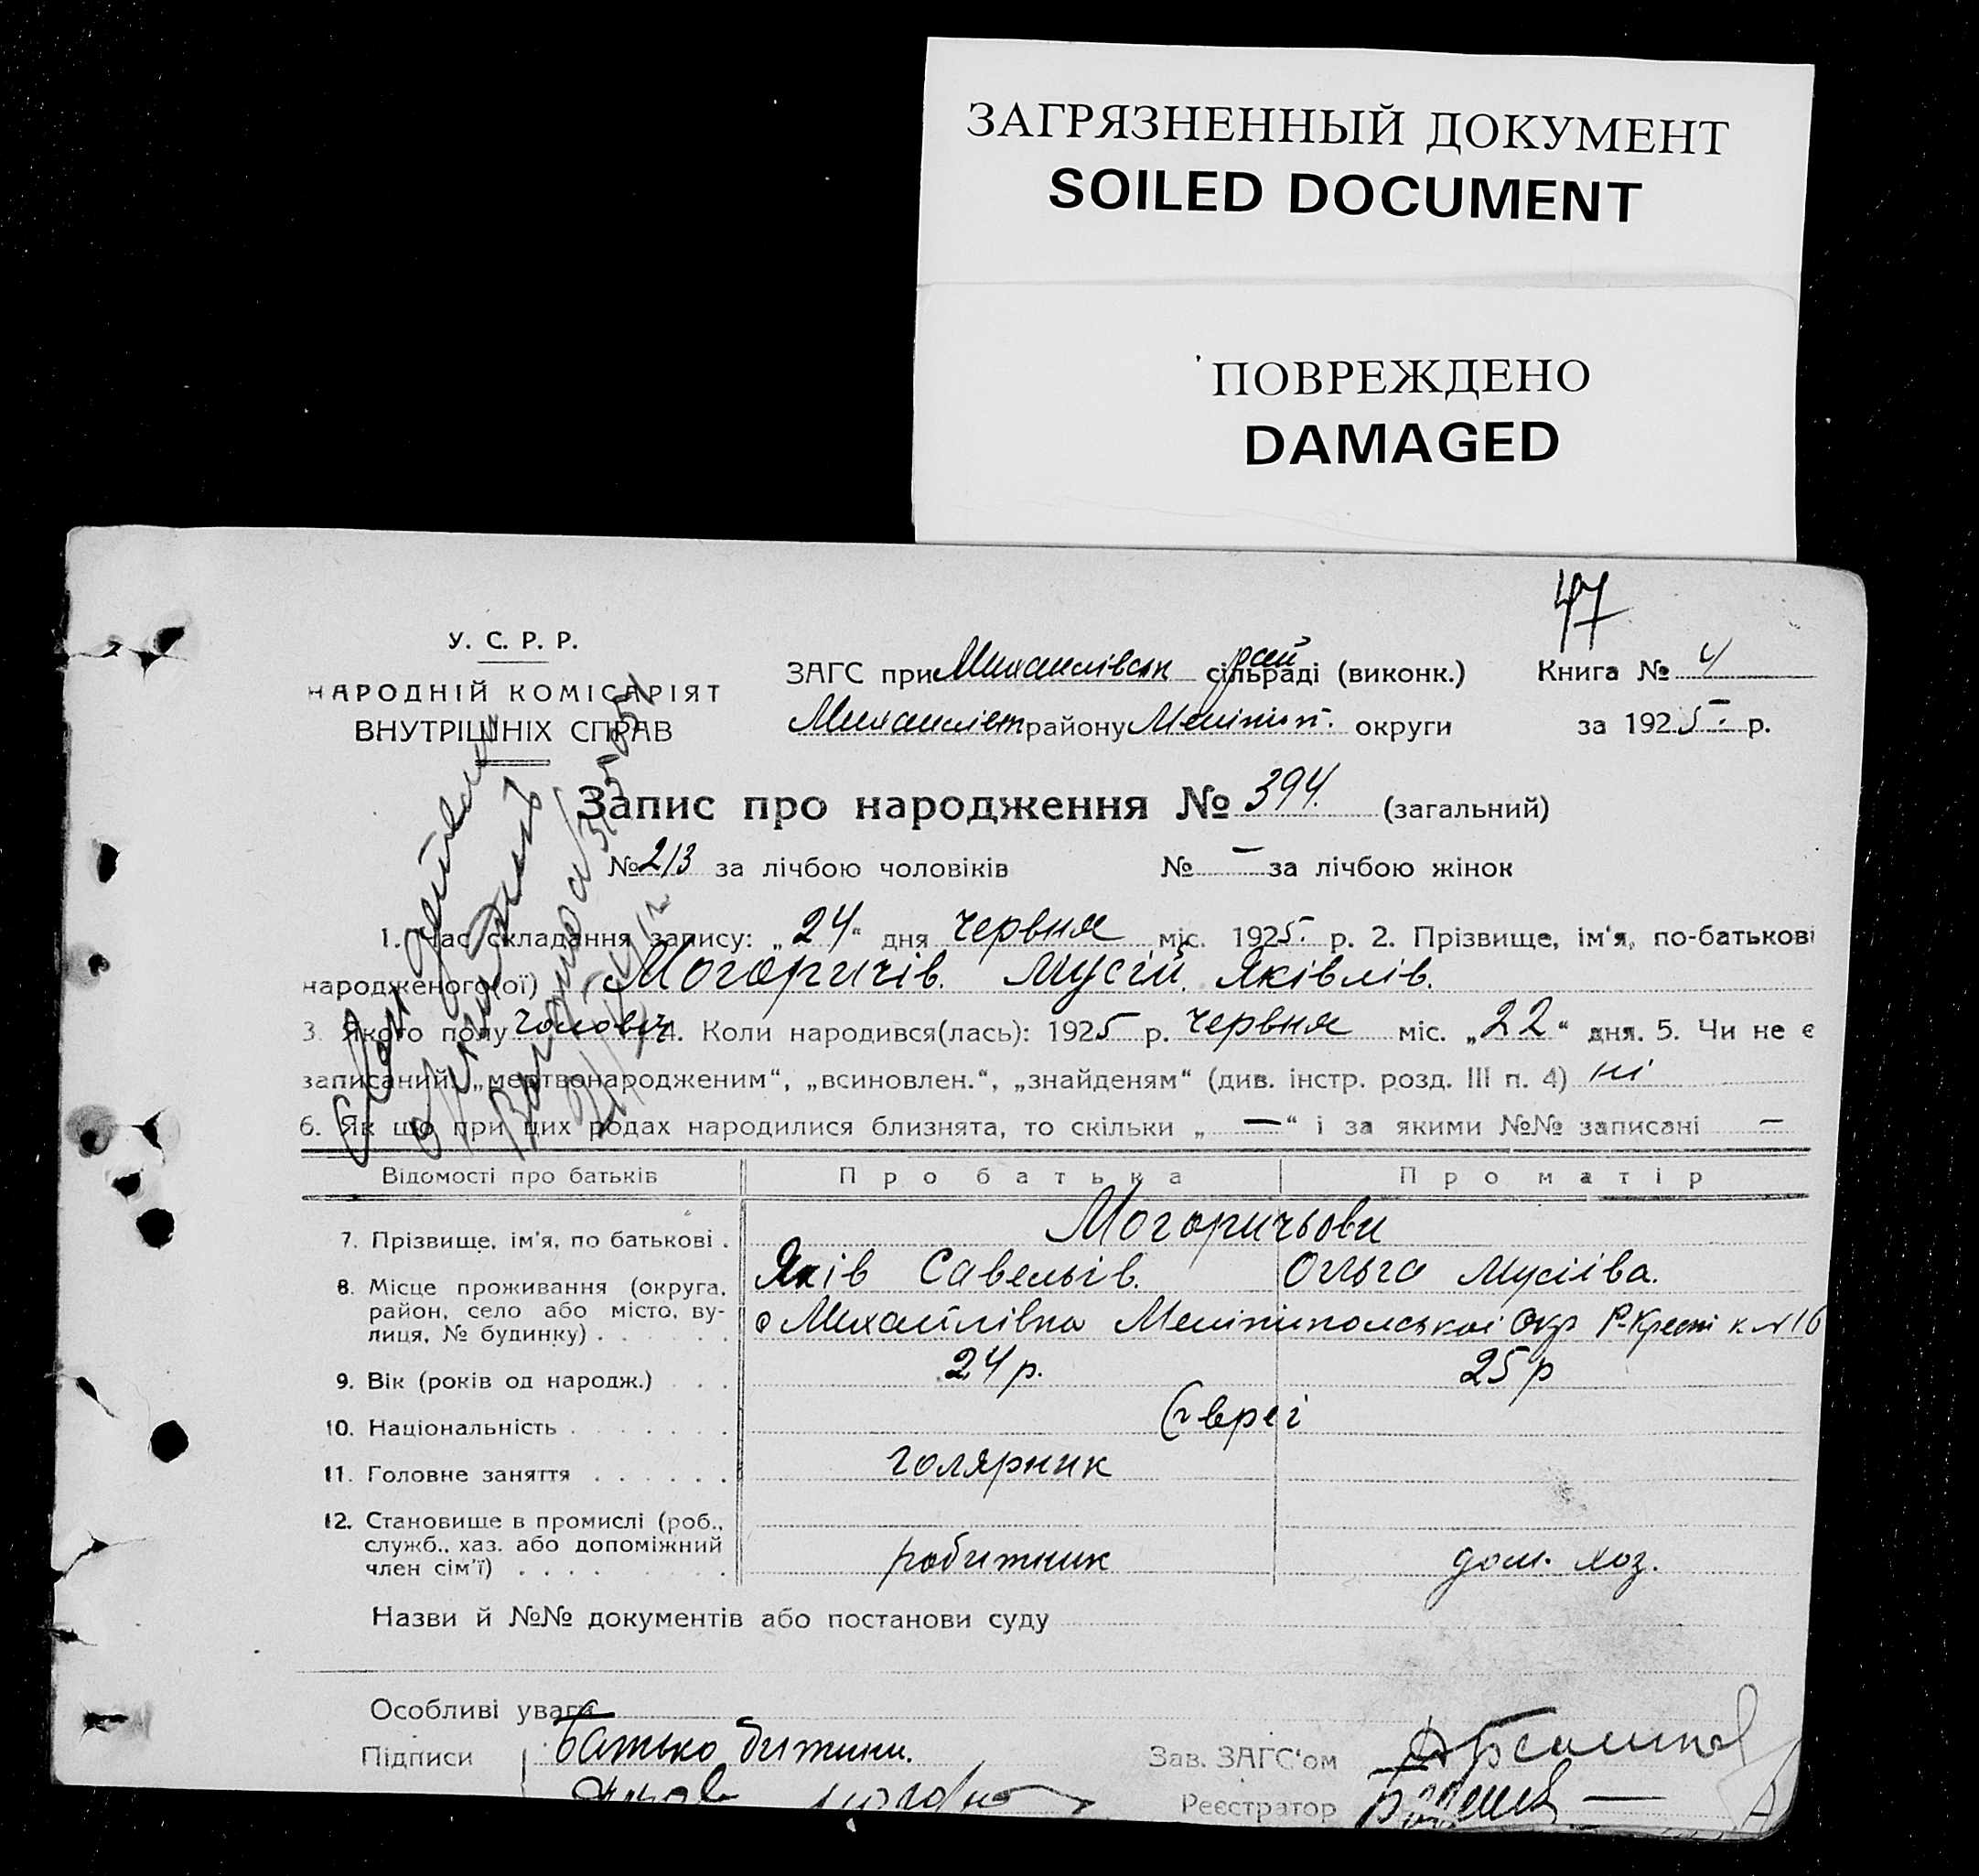 ЗАГРЯЗНЕННЫЙ ДОКУМЕНТ
SOILED DOCUMENT
ПОВРЕЖДЕНО
DAMAGED
47
У. С. Р. Р.
НАРОДНІЙ КОМІСАРІЯТ
ВНУТРІШНІХ СПРАВ
ЗАГС при Михайлівськ рай сільраді (виконк.) Книга № 4
району Мелітоп. округи за 1925 р.
Запис про народження № 394. (загальний)
№ 213 за лічбою чоловіків № – за лічбою жінок
1. Час складання запису: „24“ дня червня міс. 1925. р. 2. Прізвище, ім'я, по-батькові
народженого(ої) Могоричів. Мусій. Яківлів.
3. Якого полу чоловіч 4. Коли народився(лась): 1925 р. червня міс. „22“ дня. 5. Чи не є
записаний: „мертвонародженим“, „всиновлен.“, „знайденям“ (див. інстр. розд. III п. 4) ні
6. Як що при цих родах народилися близнята, то скільки „ — “ і за якими №№ записані —
Відомості про батьків Про батька Про матір
7. Прізвище, ім'я, по батькові . Могоричьови
Яків Савельів. Ольга Мусіїва.
8. Місце проживання (округа,
район, село або місто, ву-
лиця, № будинку) . с Михайлівка Меліпипольської Окр
9. Вік (років од народж.) 24 р. 25 р
10. Національність Євреї
11. Головне заняття голярник
12. Становище в промислі (роб.,
служб., хаз. або допоміжний
член сім'ї) робитник дом. хоз.
Назви й №№ документів або постанови суду
Особливі уваги
Підписи Батько дитини.
Зав. ЗАГС'ом
Реєстратор